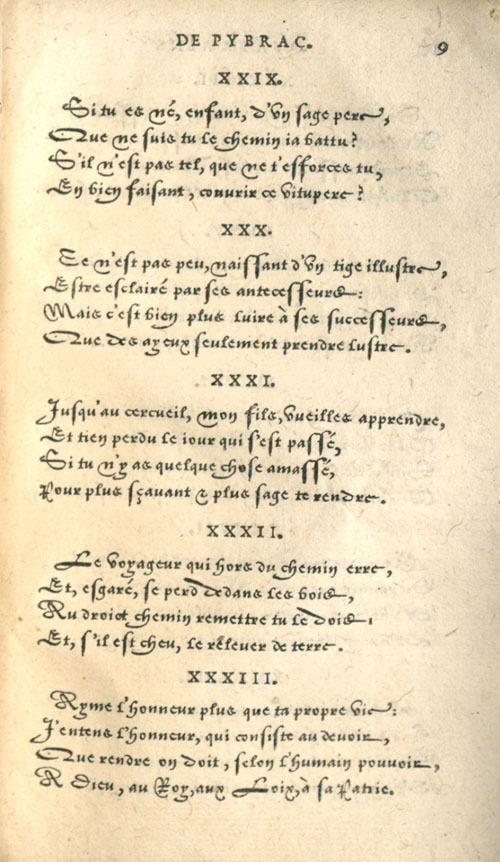 DE PYBRAC.
9
XXIX.
Si tu es né, enfant, d'vn sage pere,
Que ne suis tu le chemin ia battu?
S'il n'est pas tel, que ne t'esforces tu,
En bien faisant, couurir ce vitupere?
XXX.
Ce n'est pas peu, naissant d'vn tige illustre,
Estre esclairé par ses antecesseurs:
Mais c'est bien plus luire à ses successeurs,
Que des ayeux seulement prendre lustre.
XXXI.
Jusqu'au cercueil, mon fils, vueilles apprendre,
Et tien perdu le iour qui s'est passé,
Si tu n'y as quelque chose amassé,
Pour plus sçavant & plus sage te rendre.
XXXII.
Le voyageur qui hors du chemin erre,
Et, esgaré, se perd dedans les bois,
Au droict chemin remettre tu le dois,
Et, s'il est cheu, le relever de terre.
XXXIII.
Ayme l'honneur plus que ta propre vie:
J'entens l'honneur, qui consiste au devoir,
Que rendre on doit, selon l'humain pouvoir,
A Dieu, au Roy, aux Loix, à sa Patrie.